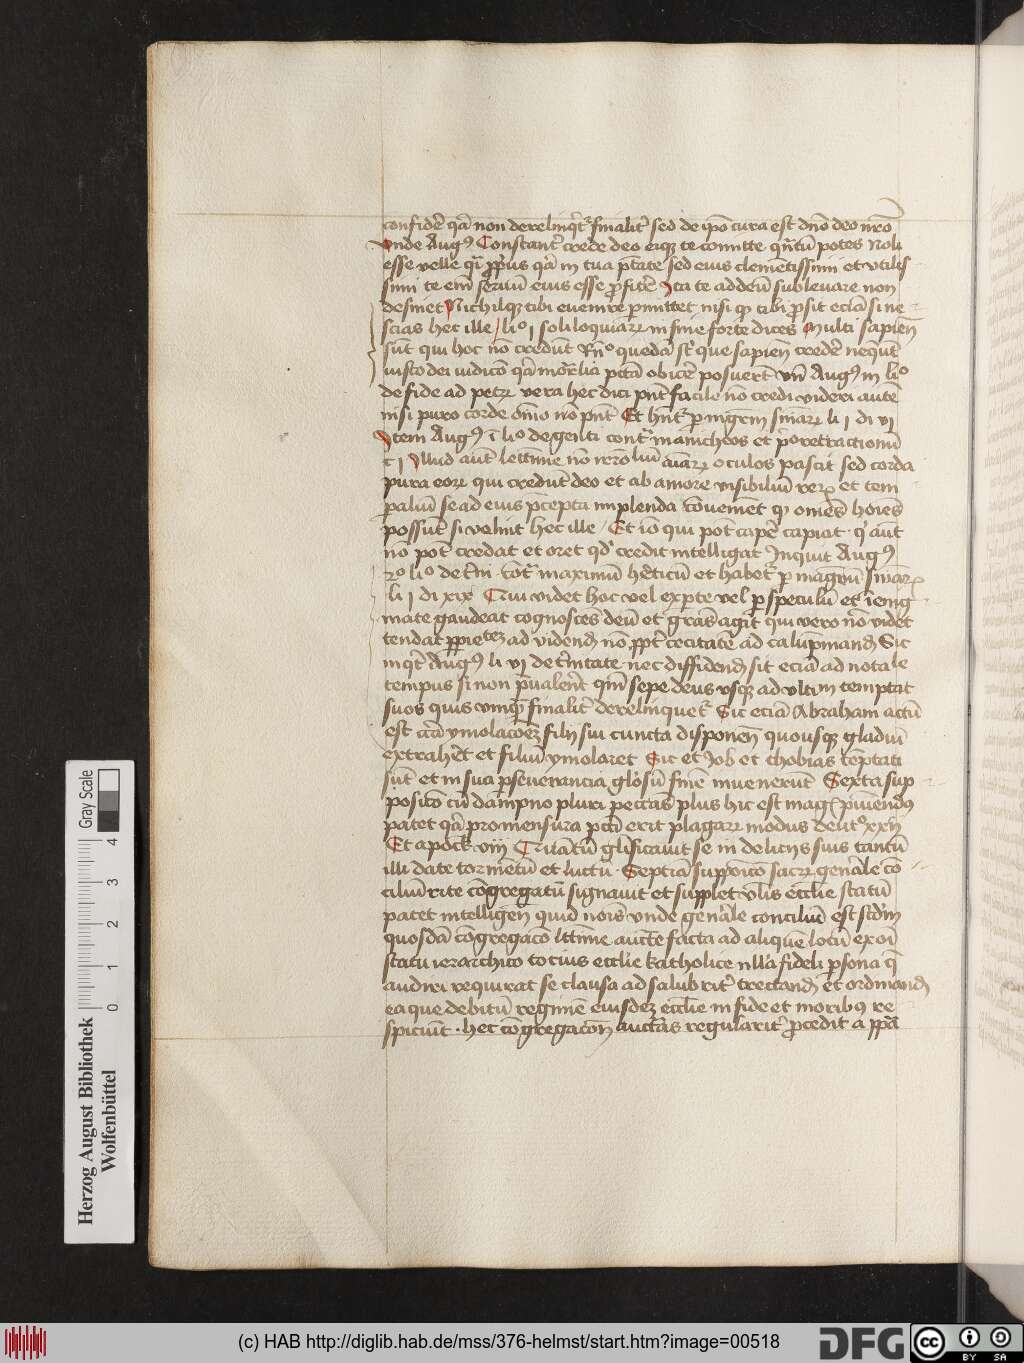 confidē qa non derelinqt finalit sed de ipo cura est dno deo nro
Vnde Aug⁹ Constant crede deo eiqꝫ te comitte qntū potes Noli
esse velle qi ppus qa in tua ptate sed eius clemētissimi et vtilis
simi te em seruū eius esse pfitē Ita te ad deū subleuare non
desinet Nichilqꝫ tibi euenire pmittet nisi qd tibi psit eciā si ne
scias hec ille / liº j soliloquiaꝝ in fine forte dices Multi sapien
sūt qui hoc nō credūt Rnº quedā st que sapien credē nequēt
iusto dei iudicō qa mortalia pctā obicē posuert vn Aug⁹ in liº
de fide ad petꝝ vera hec dici pnt facile nō credi videri autē
nisi puro corde oīno nō pnt Et hntr p mgrm sniaꝝ li j di vi
Item Aug⁹ ī liº de genti contr manicheos et po retractionū
c j Illud aūt lettīnie nō irrōliū aīaꝝ oculos pascit sed corda
pura eoꝝ qui credūt deo et ab amore visibiliū reꝝ et tem
paliū se ad eius pcepta implenda cōuernt qd omēs hoīes
possūt si velīnt hec ille / Et iō qui pot capē capiat · q aūt
nō pot credat et oret qd credit intelligat Inquit Aug⁹
2º liº de trni · cōtr maximinū hēticū et habet p magrm sniaꝝ
li j di xix Qui videt hoc vel ex pte vel p speculū et ī enig
mate gaudeat cognoscēs deū et gras agat qui vero nō videt
tendat p pietatez ad videnđ nō ppt cecitatē ad calūpmanđ Sic
inqt Aug⁹ li vj de trinitate nec diffidenđ sit eciā ad notale
tempus si non pualent qm sepe deus vsqꝫ ad vltim temptat
suos quis vmqꝫ finalit derelinquet Sic eciā Abraham actū
est circa ymolacoēz filij sui cuncta disponen quousqꝫ gladiū
extrahēt et filiū ymolaret Sic et Job et thobias tēptati
sūt et in sua pseuerancia glosū finē inuenerūt Sexta sup
posito cū dampno pluri peccās plus hic est mag puniendus
patet qa pro mensura pcti erit plagaꝝ modus deutº xxv
Et apock xviij Quantū glificauit se in delicijs suis tantū
illi date tormētū et luctū · Septiā supposicō sacꝝ genale cō
ciliū rite cōgregatū signauit et supplet vlis ecclie statū
patet intelligen quid nois vnde genale conciliū est scdm
quosdā cōgregacō lttīme auctē facta ad aliquē locū ex oī
statu ierarchico tocius ecclie katholice nlla fideli psona q
audiri requirat se clausa ad salubrit tractanđ et ordinanđ
ea que debitū regimē eiusdeꝫ ecclie in fide et moribus re
spiciūt · hec cōgregacon auctas regularit pcedit a ppa
Herzog August Bibliothek
Wolfenbüttel
0 1 2 3 4
Gray Scale
(c) HAB http://diglib.hab.de/mss/376-helmst/start.htm?image=00518
DFG
cc BY SA